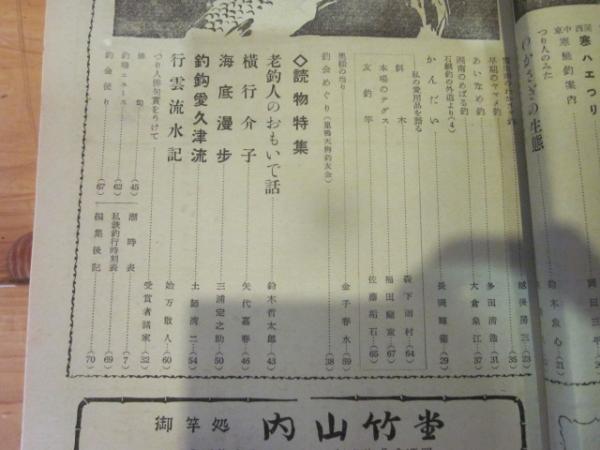 西 寒ハエつり
東 中 寒鮠釣案内
つり人のみた
わかさぎの生態 鈴木魚心 (21)
越後房三 (23)
早期のヤマメ釣 (25)
あいなめ釣 多田清造 (31)
湘南のめばる釣 大倉泉江 (37)
石鯛釣の外道より(4)
かんだい 長岡輝衛 (29)
私の愛用品を語る
餌木 森下雨村 (64)
本場のテグス 福田蘭童 (67)
友釣竿 佐藤垢石 (65)
奥様の当り 金子春水 (59)
釣会めぐり(巣鴨天狗釣友会) (38)
◇読物特集
老釣人のおもいで話 鈴木哲太郎 (43)
横行介子 矢代嘉春 (46)
海底漫歩 三浦定之助 (50)
釣鈎愛久津流 土師清二 (54)
行雲流水記 姶万散人 (60)
つり人俳句賞をうけて 受賞者諸家 (32)
俳句 (45)
釣場ニュース (62)
釣会便り (67)
潮時表 (7)
私鉄釣行時刻表 (69)
編集後記 (70)
御竿処 内山竹堂